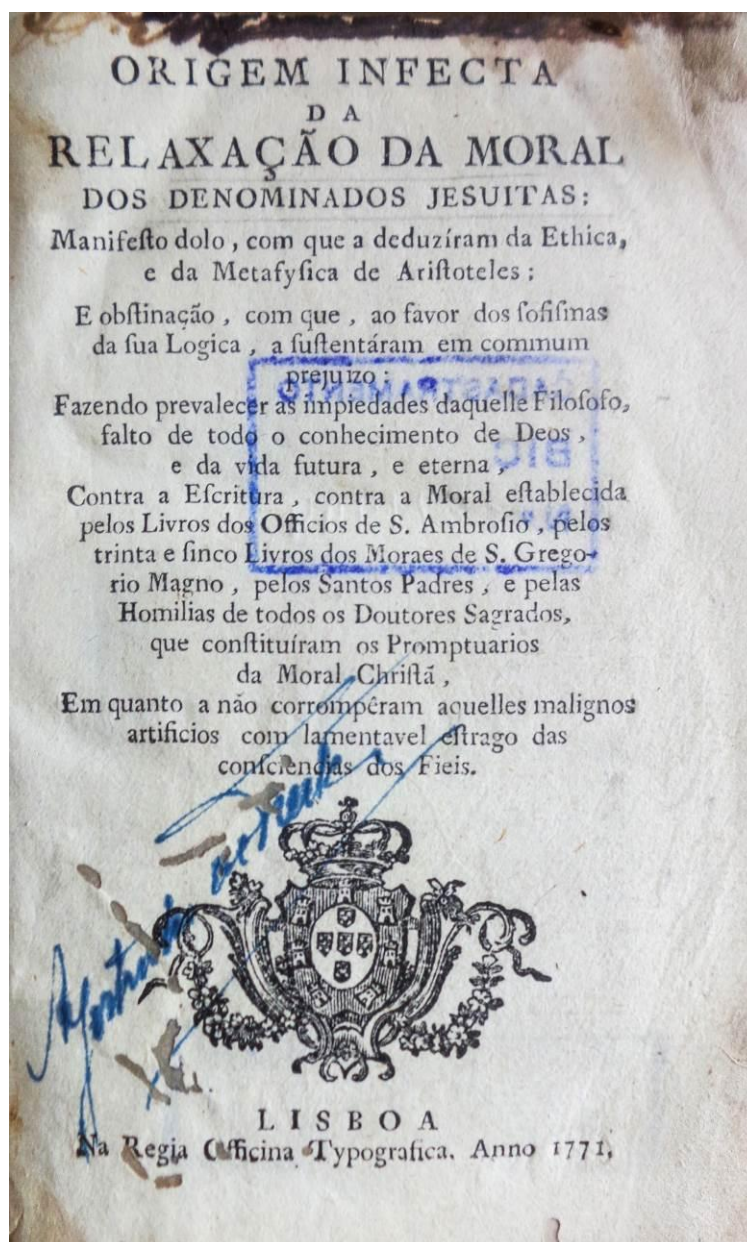 ORIGEM INFECTA
DA
RELAXAÇÃO DA MORAL
DOS DENOMINADOS JESUITAS:
Manifeſto dolo, com que a deduzíram da Ethica,
e da Metafyſica de Ariſtoteles:
E obſtinação, com que, ao favor dos ſofiſmas
da ſua Logica, a ſuſtentáram em commum
prejuizo:
Fazendo prevalecer as impiedades daquelle Filoſofo,
falto de todo o conhecimento de Deos,
e da vida futura, e eterna,
Contra a Eſcritura, contra a Moral eſtablecida
pelos Livros dos Officios de S. Ambroſio, pelos
trinta e ſinco Livros dos Moraes de S. Grego-
rio Magno, pelos Santos Padres, e pelas
Homilias de todos os Doutores Sagrados,
que conſtituíram os Promptuarios
da Moral Chriſtã,
Em quanto a não corrompêram aquelles malignos
artificios com lamentavel eſtrago das
conſciencias dos Fieis.
LISBOA
Na Regia Officina Typografica. Anno 1771.
CADASTRAMENTO
BIC